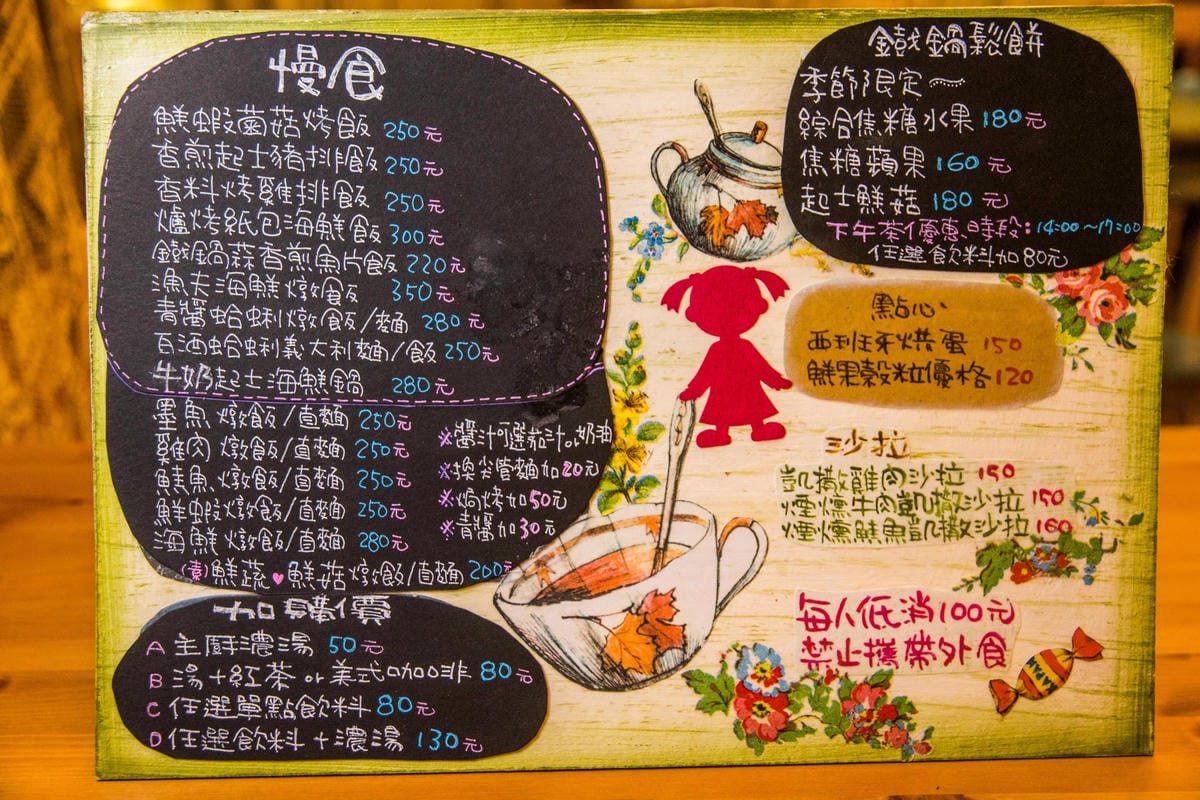 慢食
鮮蝦菌菇烤飯 250元
香煎起士豬排飯 250元
香料烤雞排飯 250元
爐烤紙包海鮮飯 300元
鐵鍋蒜香煎魚片飯 220元
漁夫海鮮燉飯 350元
青醬蛤蜊燉飯/麵 280元
白酒蛤蜊義大利麵/飯 250元
牛奶起士海鮮鍋 280元
墨魚燉飯/直麵 250元
雞肉燉飯/直麵 250元
鮭魚燉飯/直麵 250元
鮮蝦燉飯/直麵 250元
海鮮燉飯/直麵 280元
(素)鮮蔬♥鮮菇燉飯/直麵 200元
※醬汁可選茄汁。奶油
※換尖管麵加20元
※焗烤加50元
※青醬加30元
加購價
A 主廚濃湯 50元
B 湯+紅茶 or 美式咖啡 80元
C 任選單點飲料 80元
D 任選飲料+濃湯 130元
鐵鍋鬆餅
季節限定~
綜合焦糖水果 180元
焦糖蘋果 160元
起士鮮菇 180元
下午茶優惠時段:14:00~17:00
任選飲料加80元
點心
西班牙烘蛋 150
鮮果穀粒優格 120
沙拉
凱撒雞肉沙拉 150
煙燻牛肉凱撒沙拉 150
煙燻鮭魚凱撒沙拉 160
每人低消100元
禁止攜帶外食